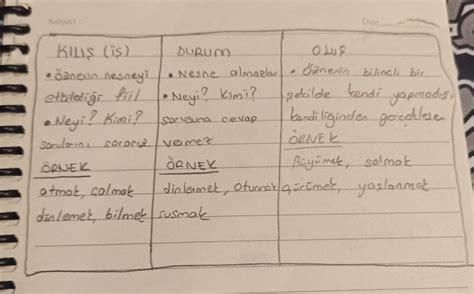 Subject :
Date
KILIŞ (İŞ)
• Öznenin nesneyi
etkilediği fiil
• Neyi? Kimi?
sorularını sorarız.
ÖRNEK
atmak, çalmak
dinlemek, bilmek
DURUM
• Nesne almazlar
• Neyi? Kimi?
sorusuna cevap
vermez
ÖRNEK
dinlenmek, oturmak
susmak
OLUŞ
• Öznenin bilinçli bir
şekilde kendi yapmadığı,
kendiliğinden gerçekleşen
ÖRNEK
Büyümek, solmak
çürümek, yaşlanmak